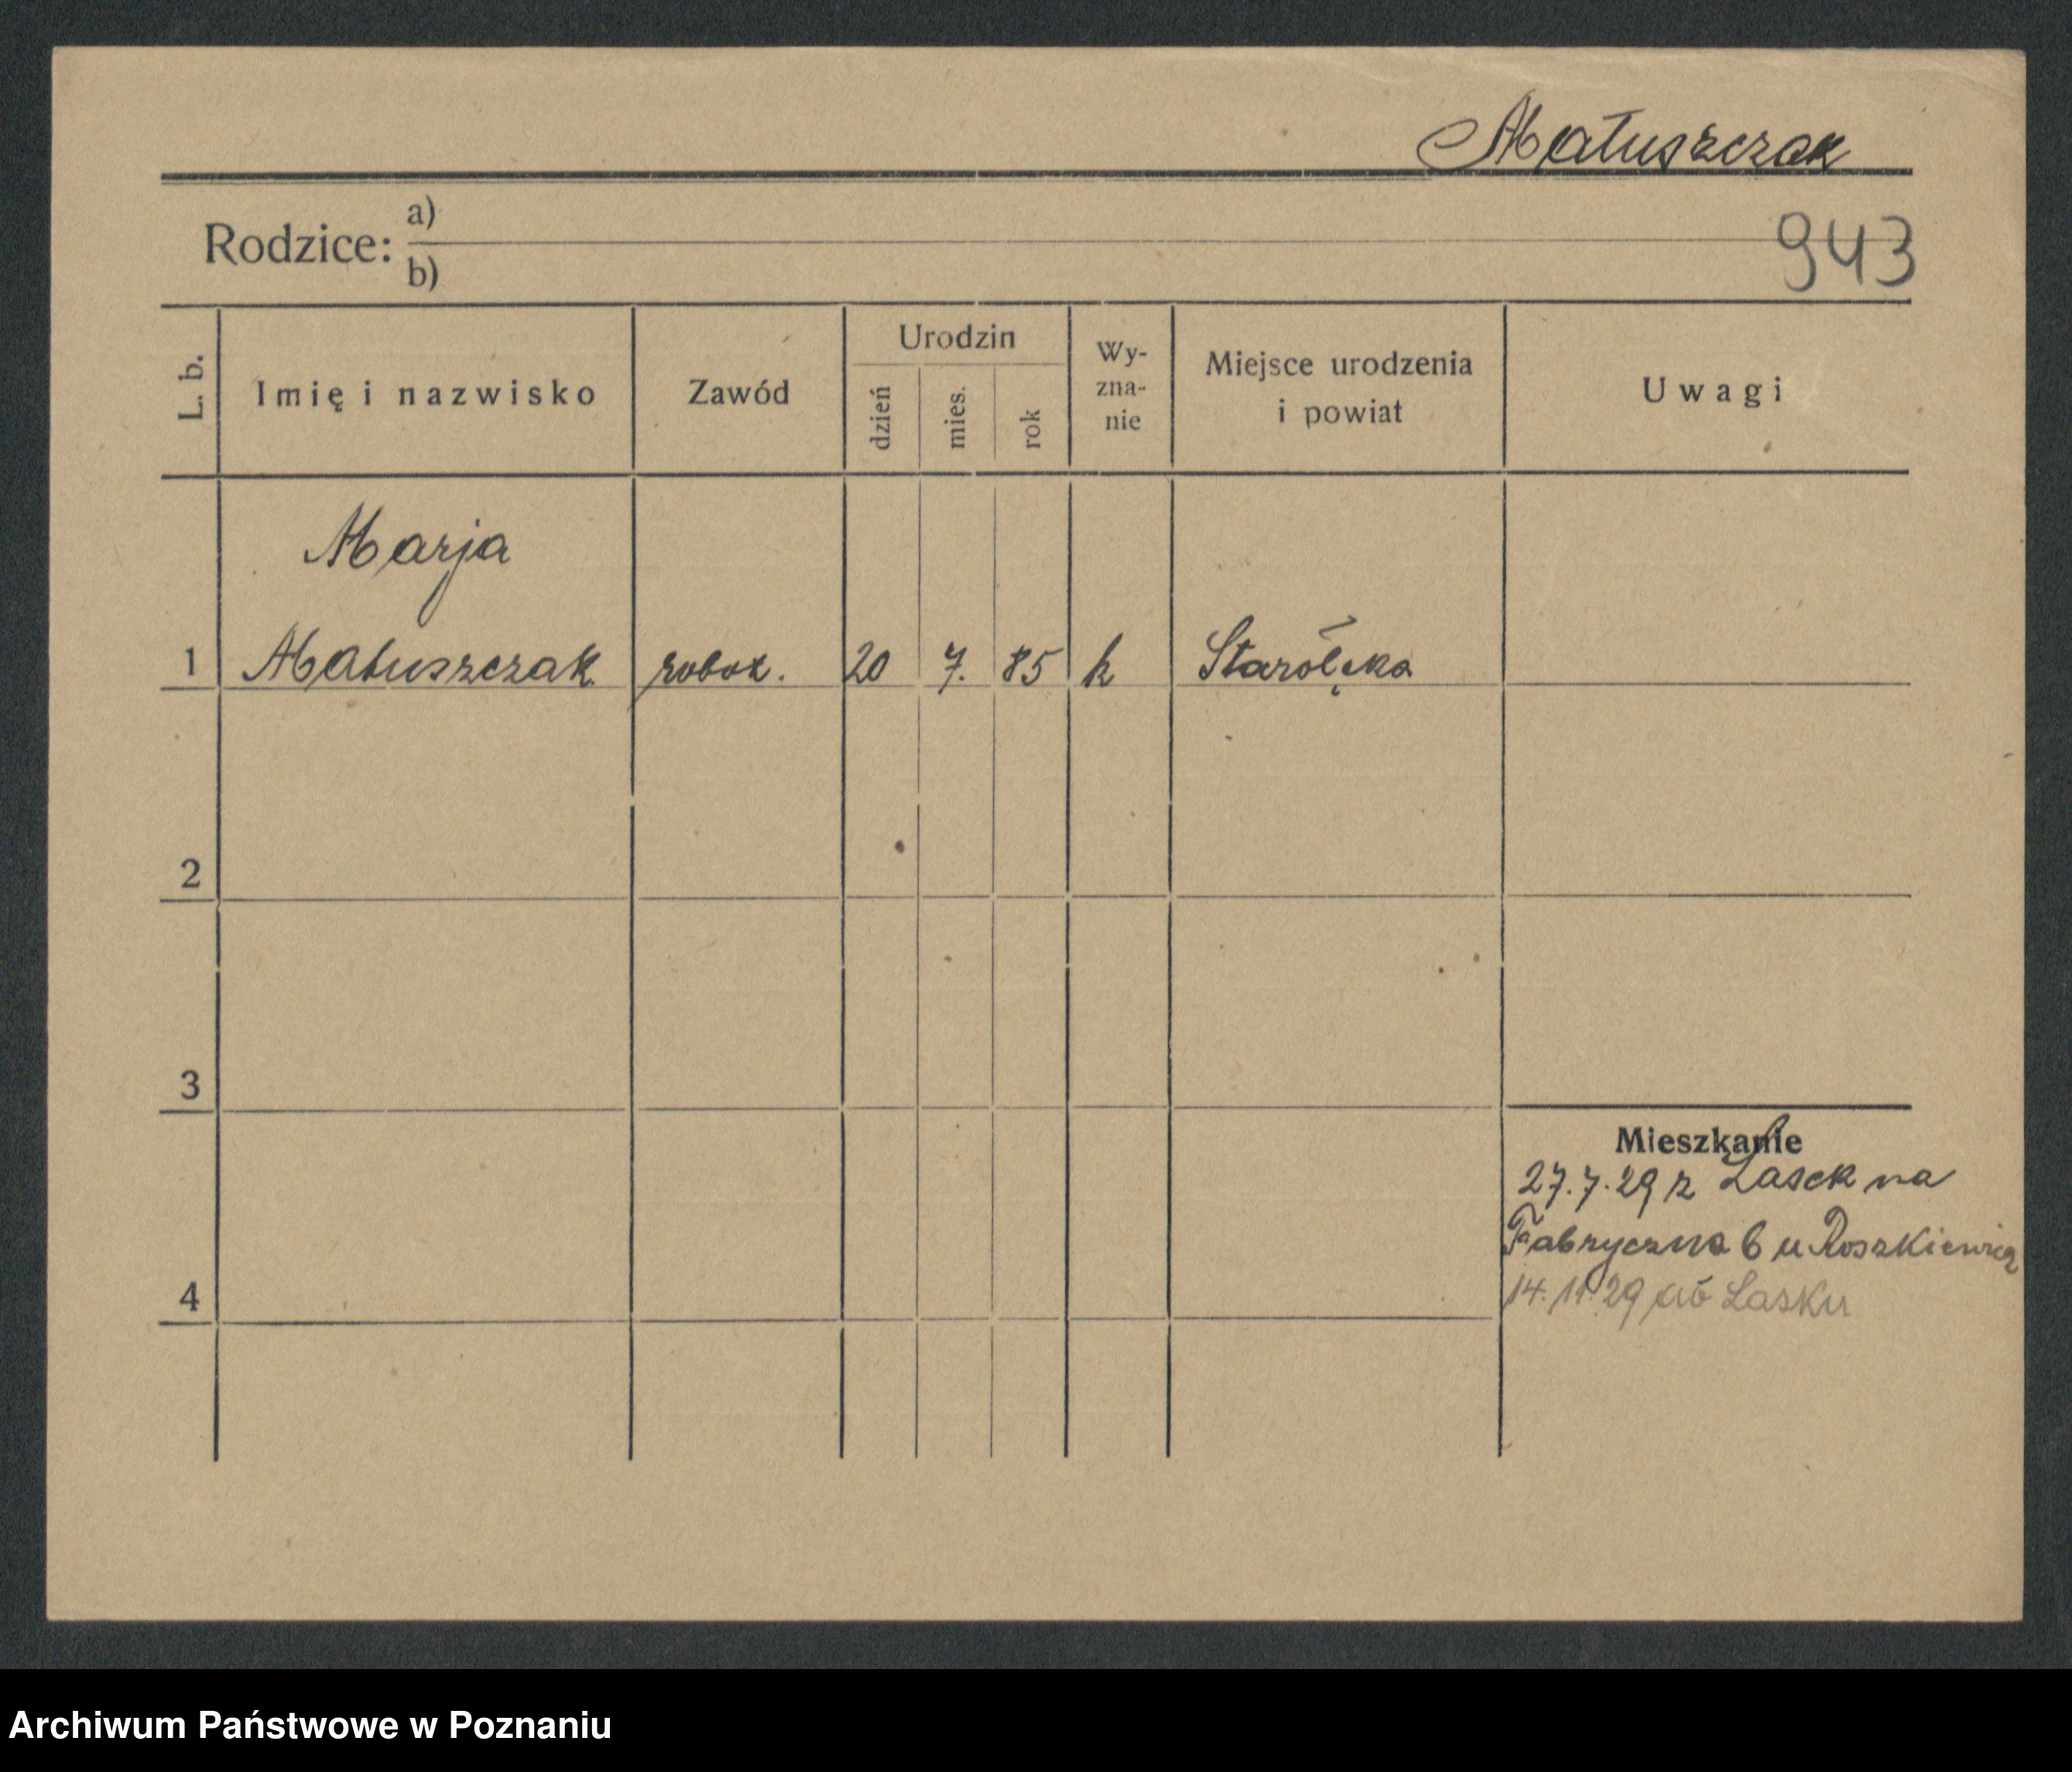 Matuszczak
Rodzice: a)
b)
943
L. b.
Imię i nazwisko
Zawód
Urodzin
dzień
mies.
rok
Wy-
zna-
nie
Miejsce urodzenia
i powiat
Uwagi
Marja
1 Matuszczak robot. 20 7. 85 k Starołęka
2
3
Mieszkanie
27.7.29 z Lasek na
Fabryczna 6 u Roszkiewicz
4
14.11.29 do Lasku
Archiwum Państwowe w Poznaniu